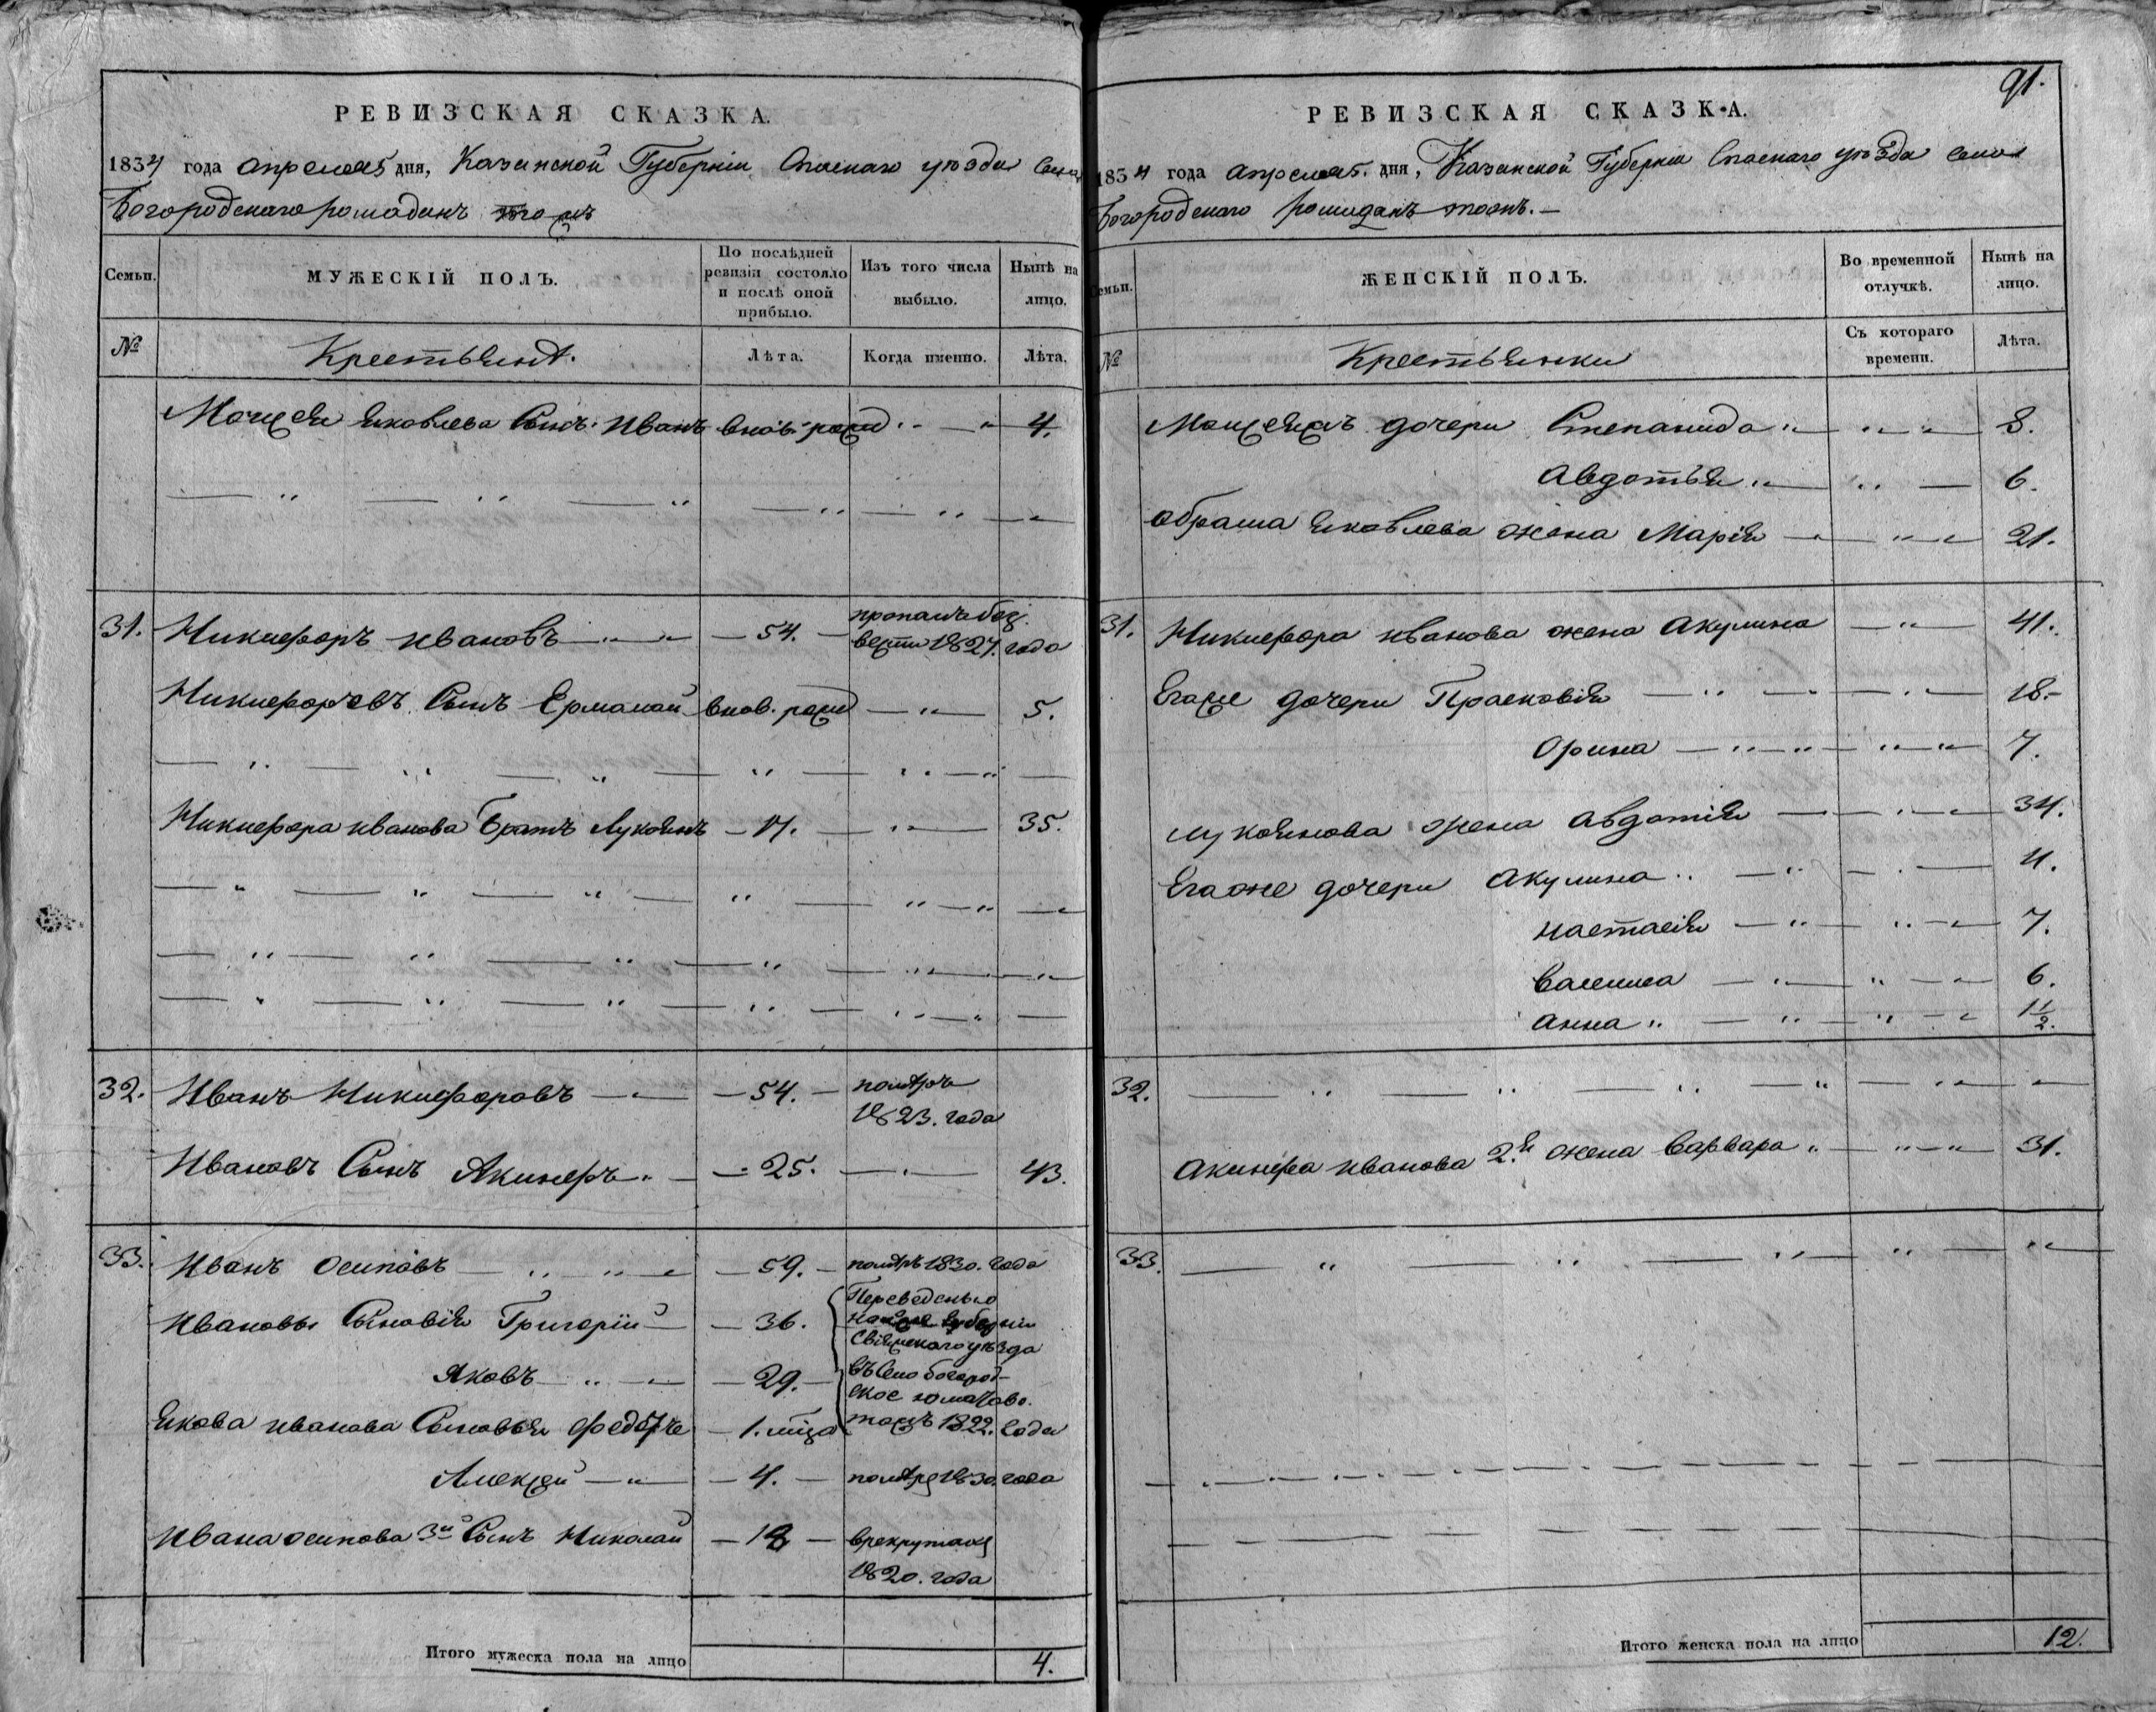 РЕВИЗСКАЯ СКАЗКА.
1834 года апреля 25 дня, Казанской Губерніи Спаскаго уезда села
Богородскаго рождань тожъ
Семьи.
МУЖЕСКІЙ ПОЛЪ.
По послѣдней ревизіи состояло и послѣ оной прибыло.
Изъ того числа выбыло.
Нынѣ на лицо.
№
Крестьяня.
Лѣта.
Когда именно.
Лѣта.
Моисея Яковлева Сынъ Иванъ внов. рожд 4.
31. Никифоръ Ивановъ 54. пропалъ без вести 1827. года
Никифоровъ Сынъ Ермалай внов. рожд 5.
Никифора иванова Братъ Лукоянъ 17. 35.
32. Иванъ Никифоровъ 54. помѣръ 1823. года
Ивановъ Сынъ Акинфъ 25. 43.
33. Иванъ осиповъ 59. помѣръ 1830. года
Ивановы Сыновія Григорій 36. Переведены
Свіяжскаго уезда
Яковъ 29. въ село богород-
ское
Якова иванова Сыновья Федоръ 1. тожъ 1822. года
Алексей 4. помѣръ 1830. года
Ивана осипова 3й Сынъ Николай 18 врекрутахъ
1820. года
Итого мужеска пола на лицо 4.
91.
РЕВИЗСКАЯ СКАЗКА.
1834 года апреля 25. дня, Казанской Губерніи Спаскаго уезда села
Богородскаго тожъ.
Семьи.
ЖЕНСКІЙ ПОЛЪ.
Во временной отлучкѣ.
Нынѣ на лицо.
№
Крестьянки
Съ котораго времени.
Лѣта.
дочери Степанида 8.
Авдотья 6.
Яковлева жена Марія 21.
31. Никифора иванова жена Акулина 41.
Егоже дочери Прасковія 18.
Орина 7.
Лукоянова жена Авдотія 34.
Егоже дочери Акулина
настасія 7.
6.
Анна 1 1/2.
32.
Акинфа иванова 2я жена Варвара 31.
33.
Итого женска пола на лицо 12.